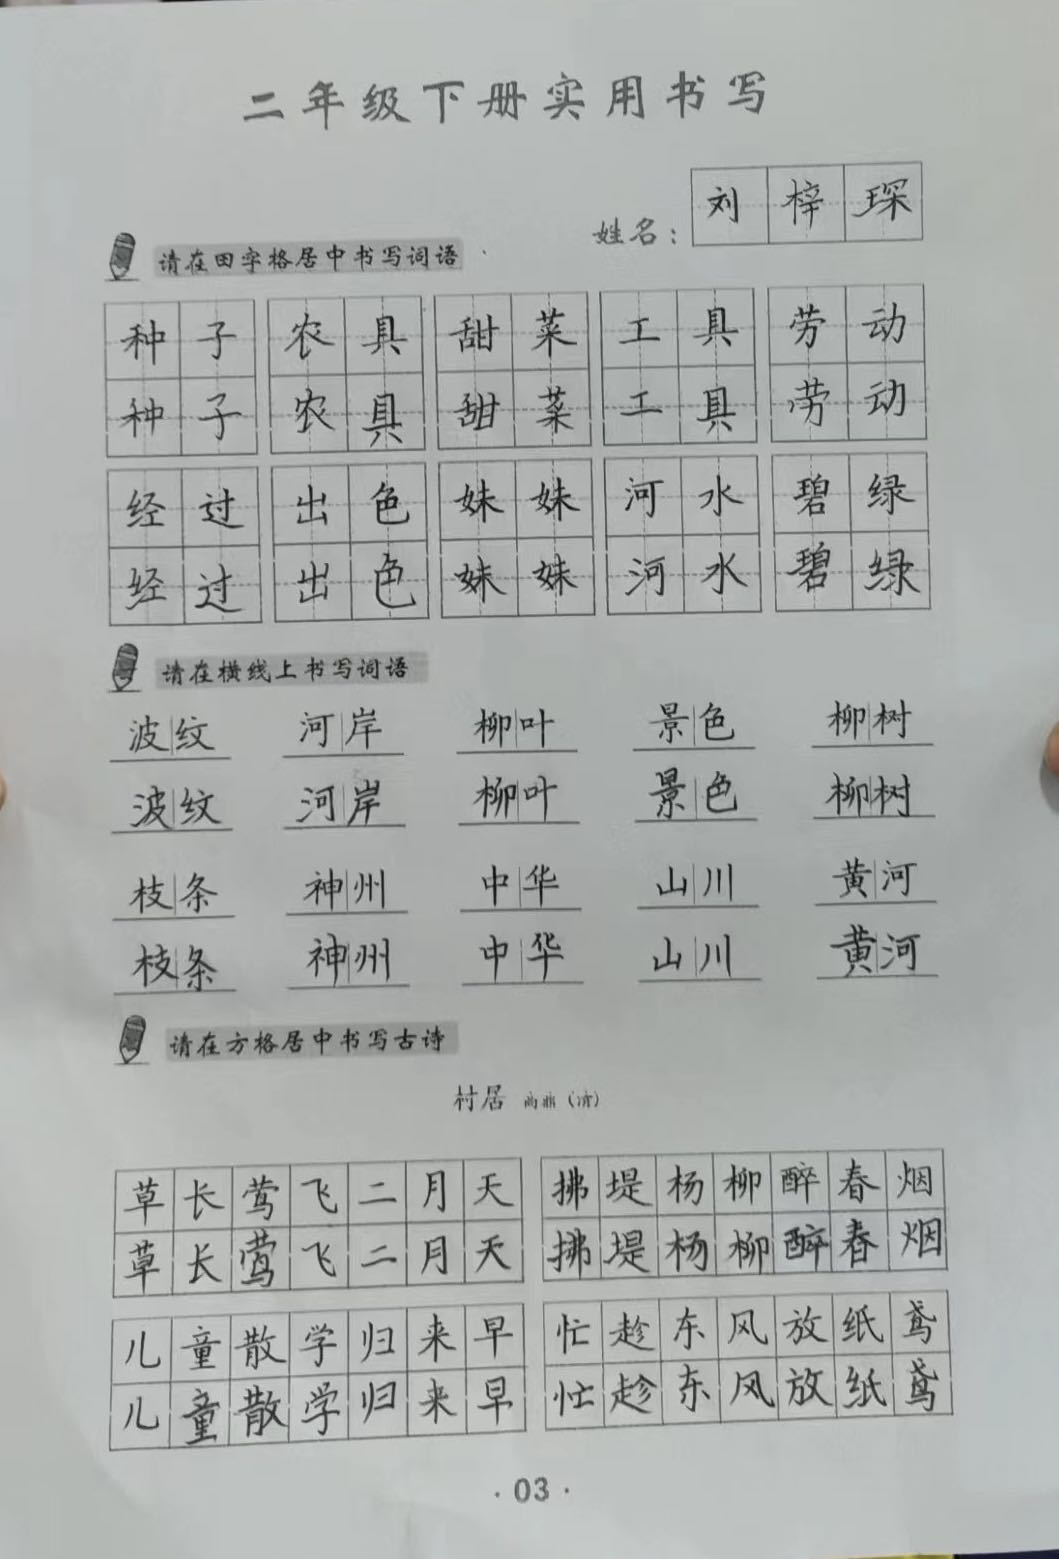 二年级下册实用书写
姓名：刘梓琛
请在田字格居中书写词语
种子 农具 甜菜 工具 劳动
种子 农具 甜菜 工具 劳动
经过 出色 妹妹 河水 碧绿
经过 出色 妹妹 河水 碧绿
请在横线上书写词语
波纹 河岸 柳叶 景色 柳树
波纹 河岸 柳叶 景色 柳树
枝条 神州 中华 山川 黄河
枝条 神州 中华 山川 黄河
请在方格居中书写古诗
村居 高鼎（清）
草长莺飞二月天 拂堤杨柳醉春烟
草长莺飞二月天 拂堤杨柳醉春烟
儿童散学归来早 忙趁东风放纸鸢
儿童散学归来早 忙趁东风放纸鸢
·03·